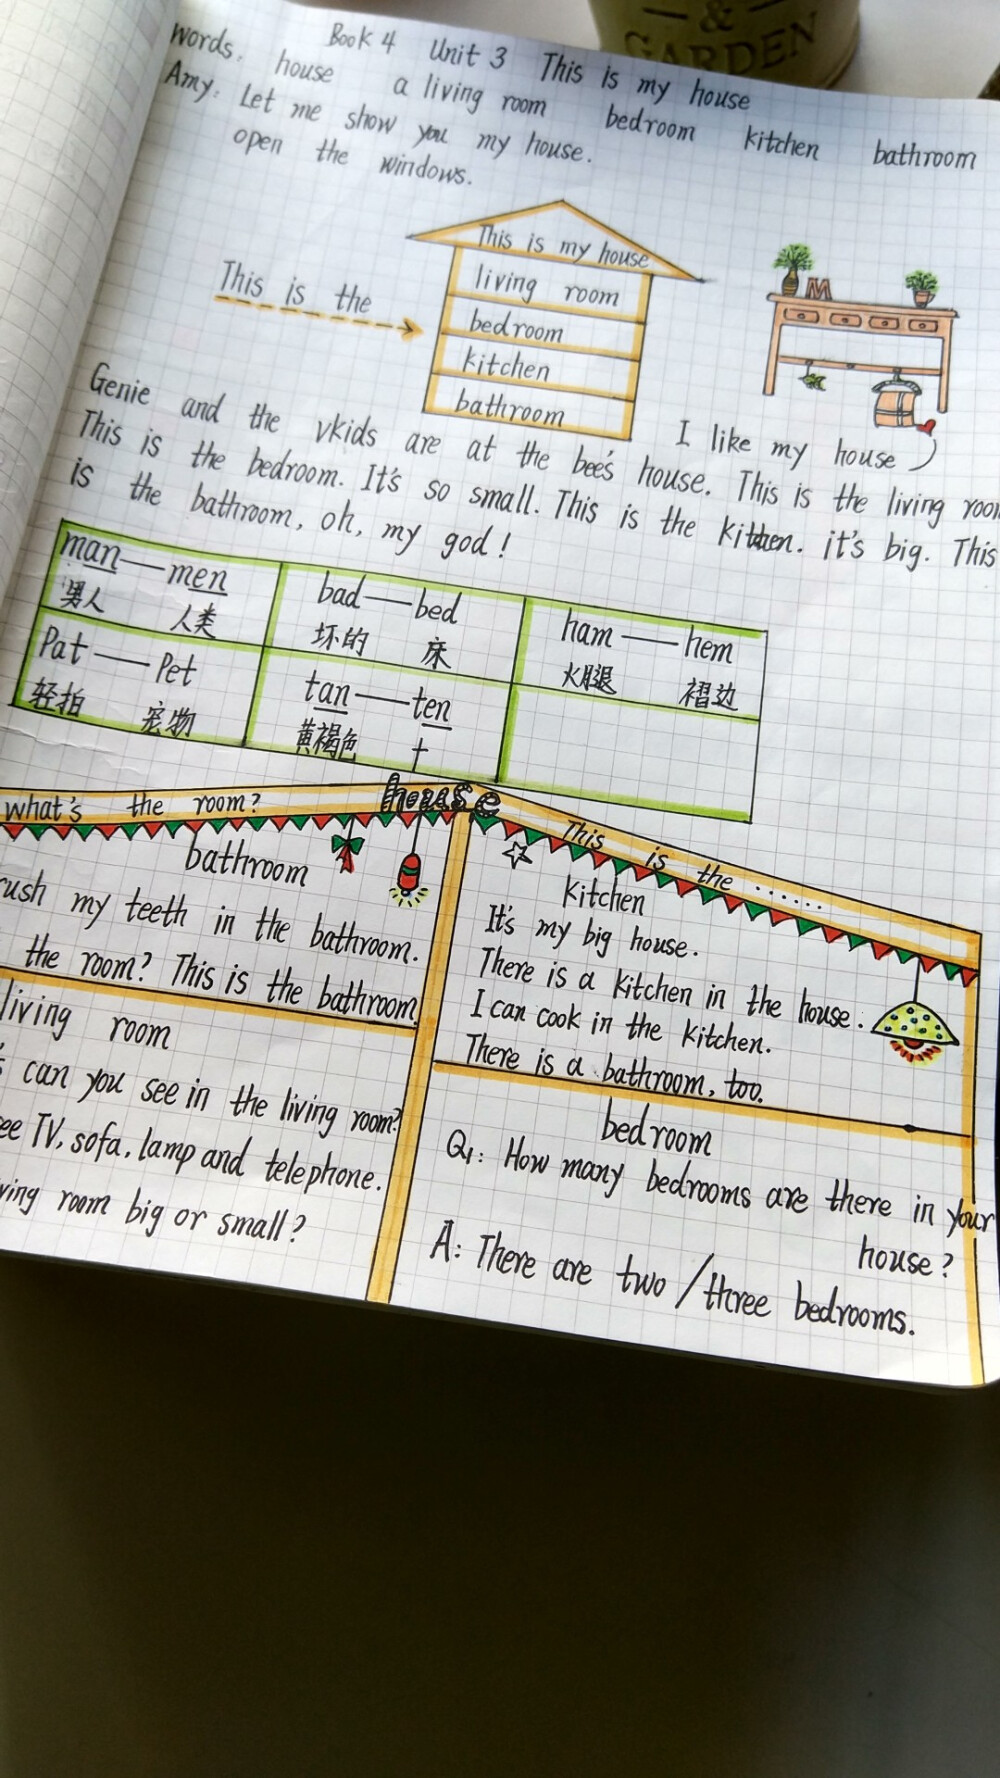 &
GARDEN
Book 4 Unit 3 This is my house
words. house a living room bedroom kitchen bathroom
Amy: Let me show you my house.
open the windows.
This is the
This is my house
living room
bedroom
kitchen
bathroom
I like my house
Genie and the vkids are at the bee's house. This is the living room
This is the bedroom. It's so small. This is the kitchen. it's big. This
is the bathroom, oh, my god!
man — men
男人 人类
bad — bed
坏的 床
ham — hem
火腿 褶边
Pat — Pet
轻拍 宠物
tan — ten
黄褐色 十
house
what's the room?
This is the ......
bathroom
rush my teeth in the bathroom.
the room? This is the bathroom.
living room
can you see in the living room?
ee TV, sofa, lamp and telephone.
ving room big or small?
kitchen
It's my big house.
There is a kitchen in the house.
I can cook in the kitchen.
There is a bathroom, too.
bedroom
Q1: How many bedrooms are there in your
house?
A: There are two / three bedrooms.